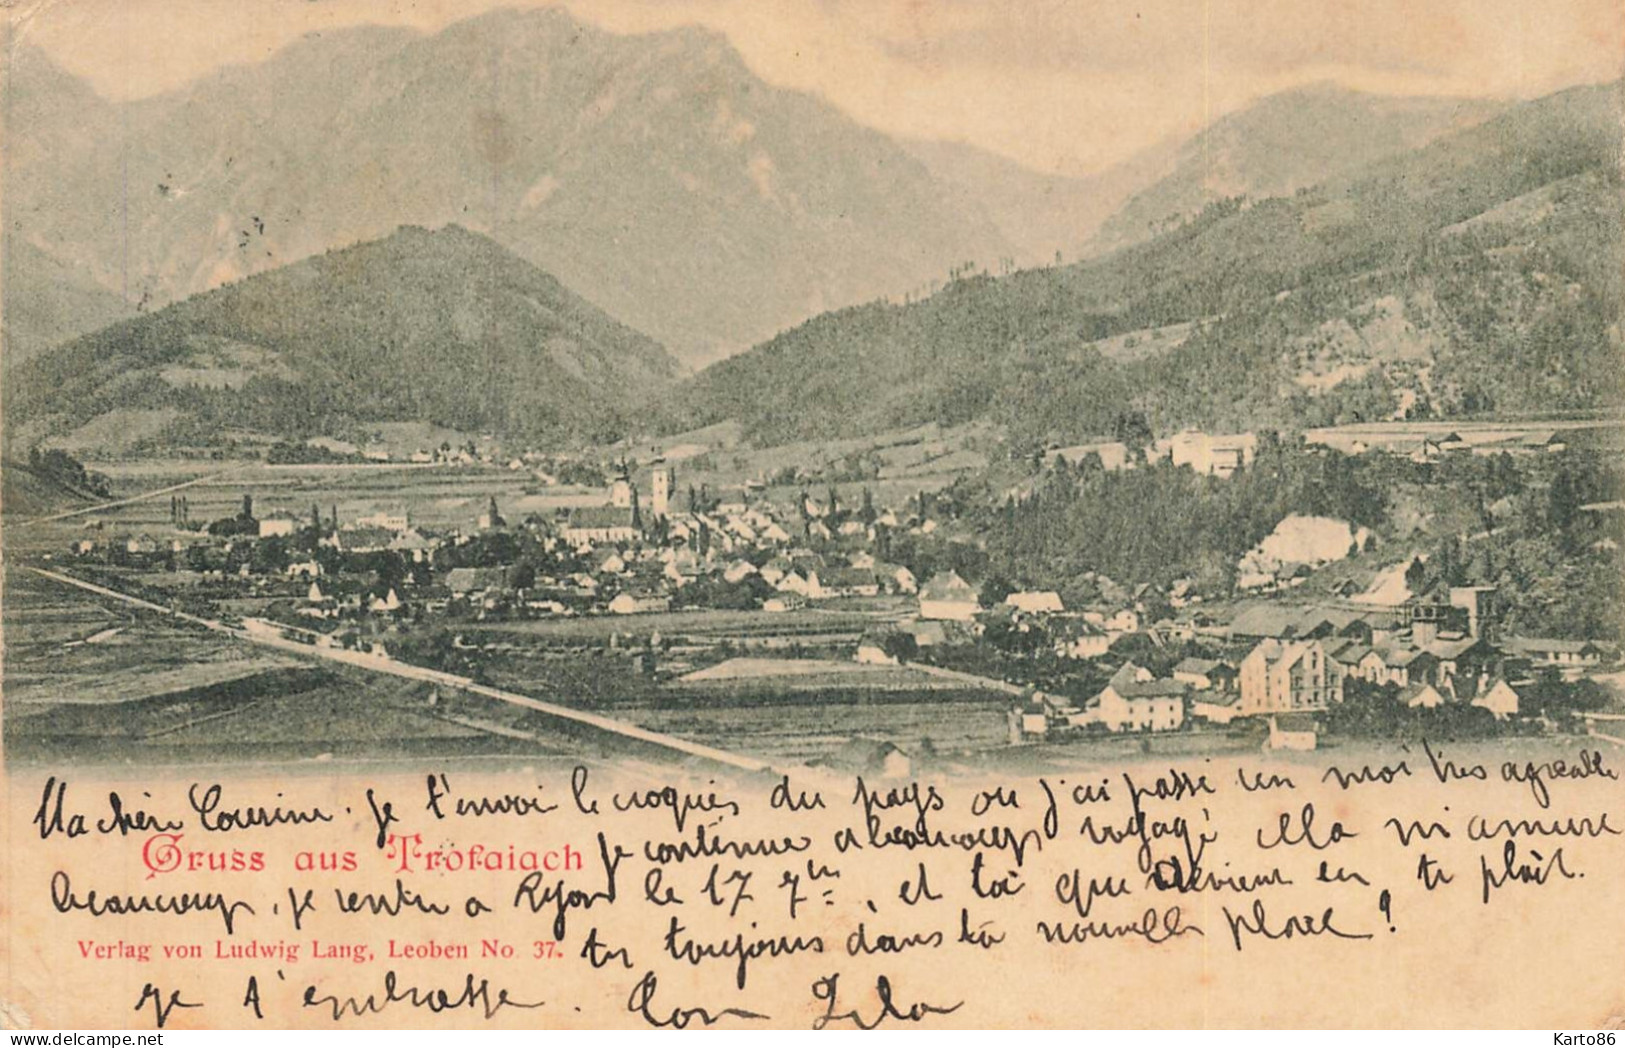 Ma chère Cousine. je t'envoi le croquis du pays ou j'ai passé un moi très agréable
je continue a beaucoup voyagé cela m'amure
Gruss aus Trofaiach
beaucoup, je rentre a Lyon le 17 7bre, et toi que devient en tu plait.
Verlag von Ludwig Lang, Leoben No. 37.
tu toujours dans ta nouvelle place?
je t'embrasse. Ton
delcampe.net
Karto86